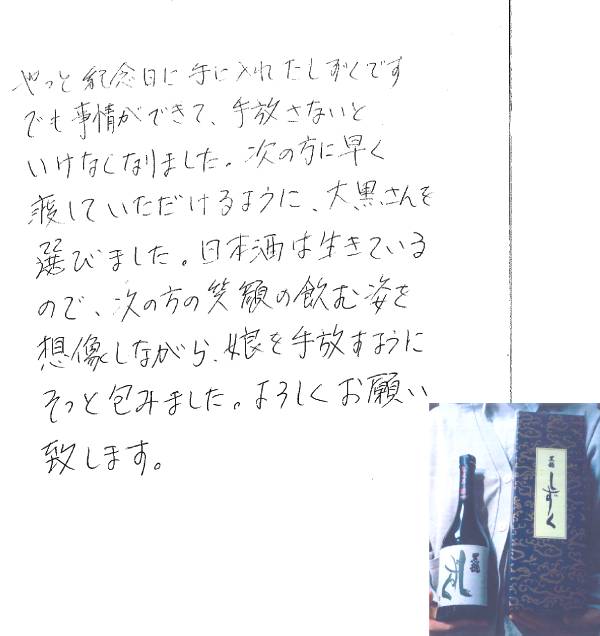 やっと記念日に手に入れたしずくです
でも事情ができて、手放さないと
いけなくなりました。次の方に早く
渡していただけるように、大黒さんを
選びました。日本酒は生きている
ので、次の方の笑顔の飲む姿を
想像しながら、娘を手放すように
そっと包みました。よろしくお願い
致します。
黒龍
しずく
黒龍
しずく